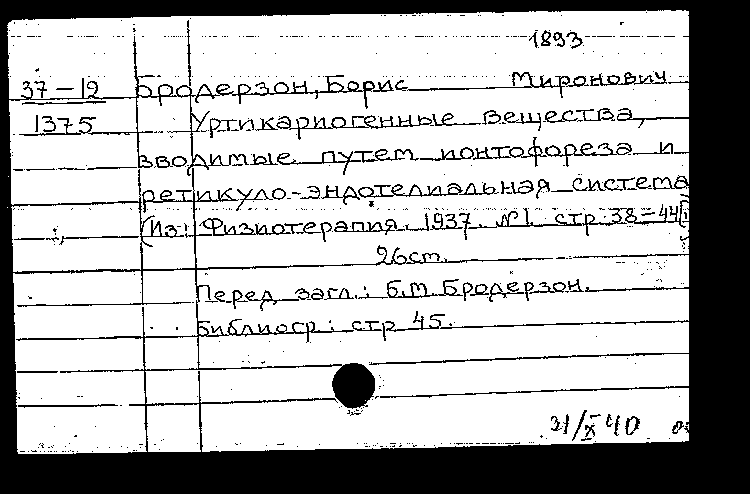 1893
37-12 Бродерзон, Борис Миронович
1375 Уртикариогенные вещества,
зводимые путем ионтофореза и
ретикуло-эндотелиальная система
(Из: Физиотерапия. 1937. №1. стр. 38-44)
26см.
Перед загл.: Б.М. Бродерзон.
Библиогр: стр 45.
31/X 40